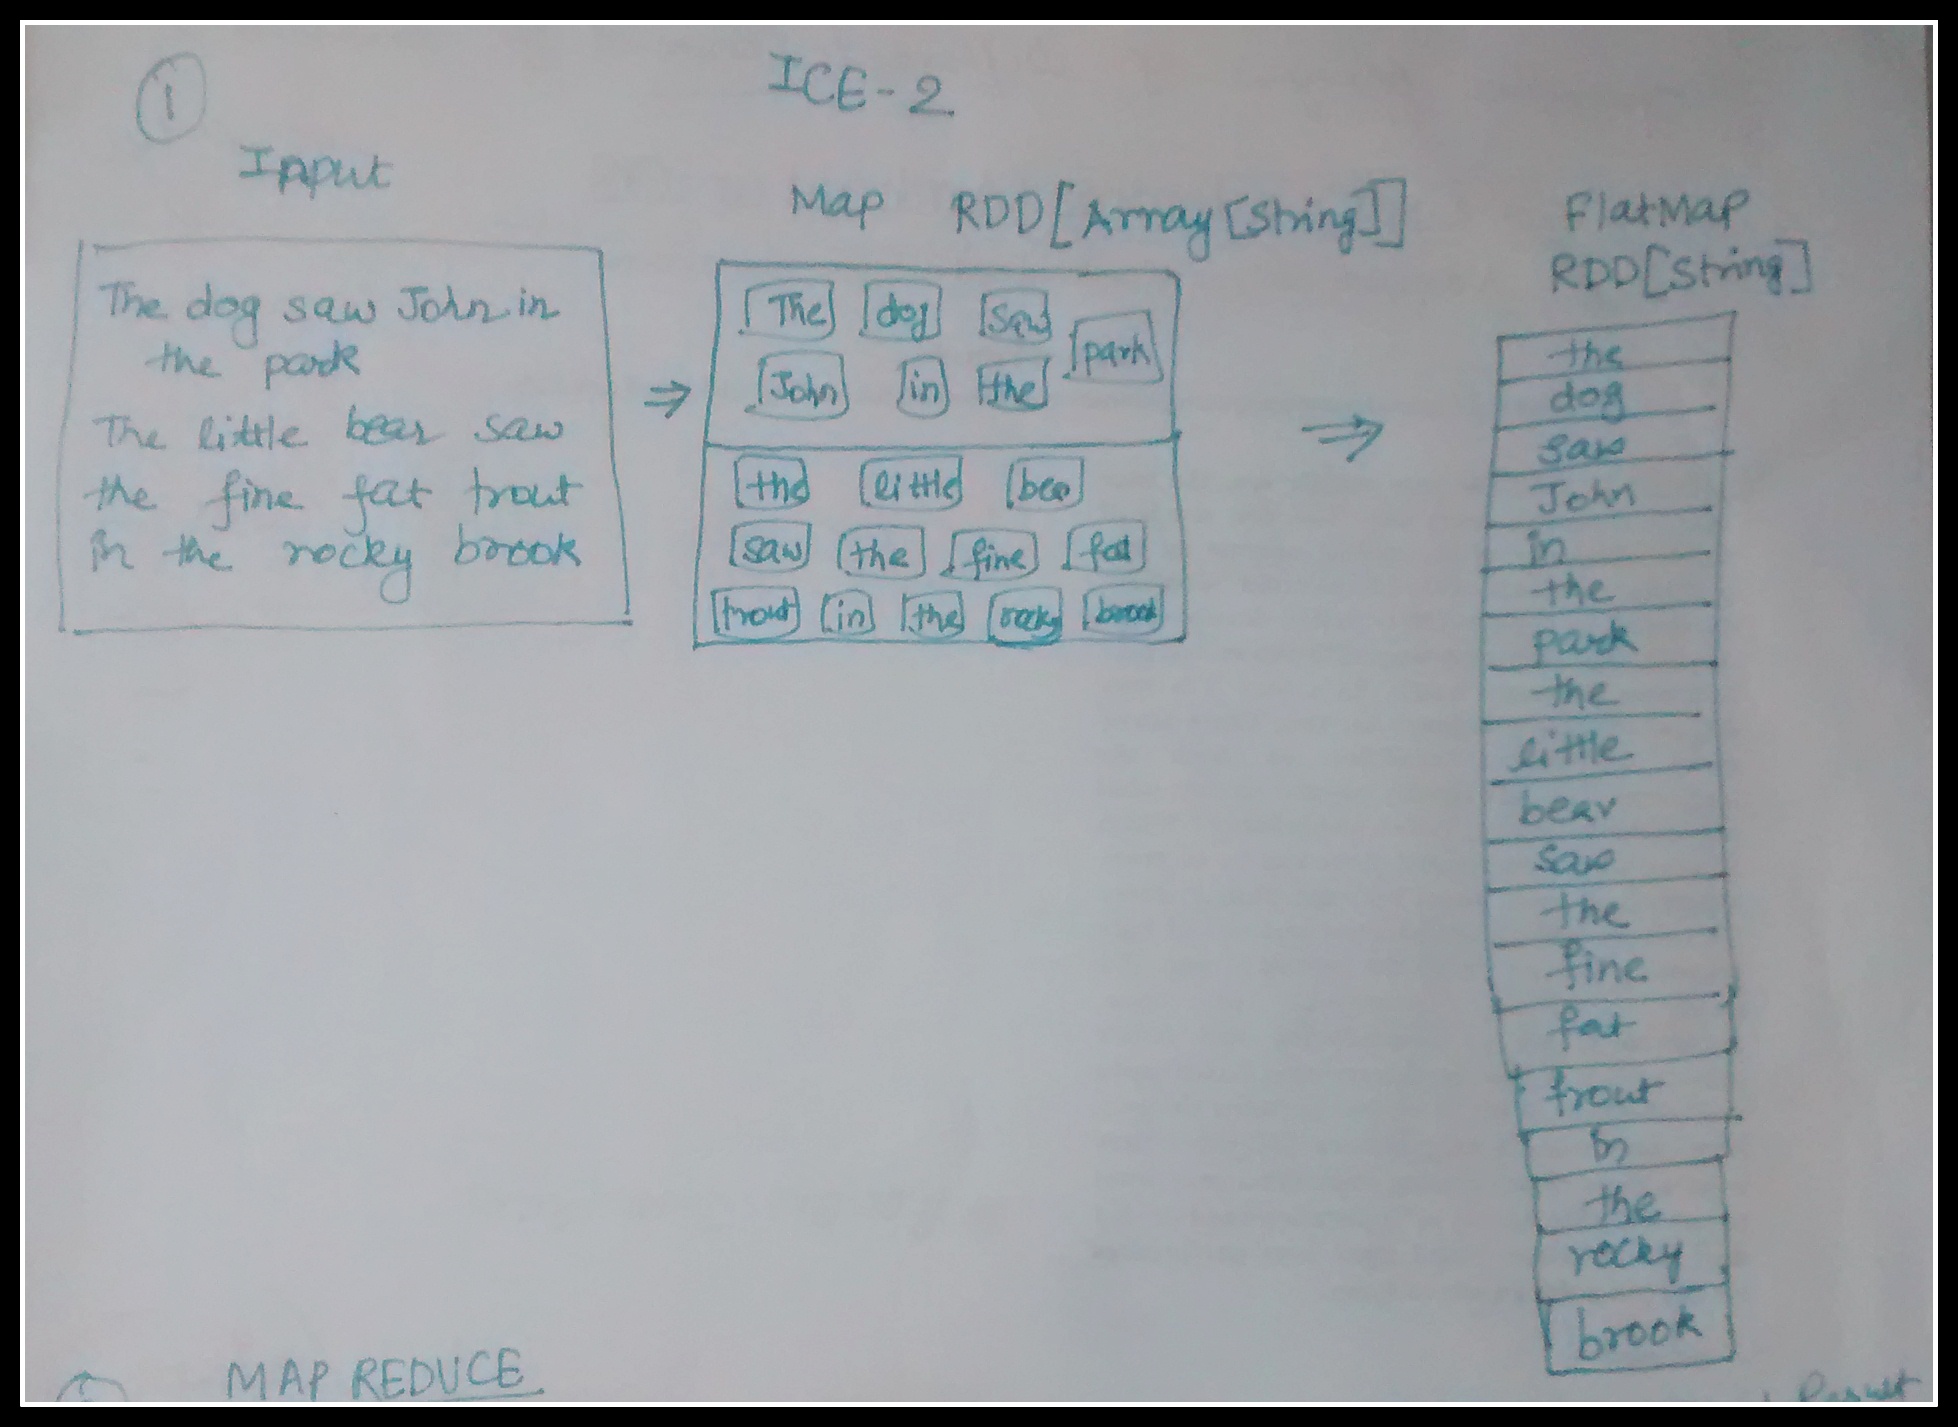 1
ICE-2
Input
The dog saw John in
the park
The little bear saw
the fine fat trout
in the rocky brook
Map RDD[Array[String]]
The dog saw
park
John in the
the little bea
saw the fine fat
trout in the rocky brook
FlatMap
RDD[String]
the
dog
saw
John
in
the
park
the
little
bear
saw
the
fine
fat
trout
in
the
rocky
brook
MAP REDUCE
Result